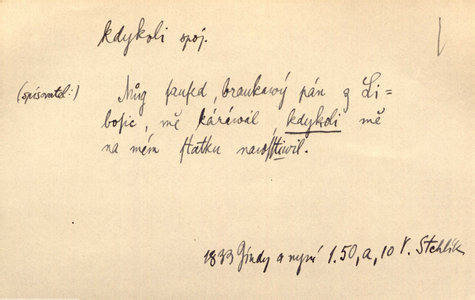 kdykoli spoj.
(spisovatel:)
Můg saused, braukawý pán z Li-
bosic, mě káráwal, kdykoli mě
na mém statku nawsstiwil.
1833 Gindy a nyní 1.50, a, 10 V. Stehlík